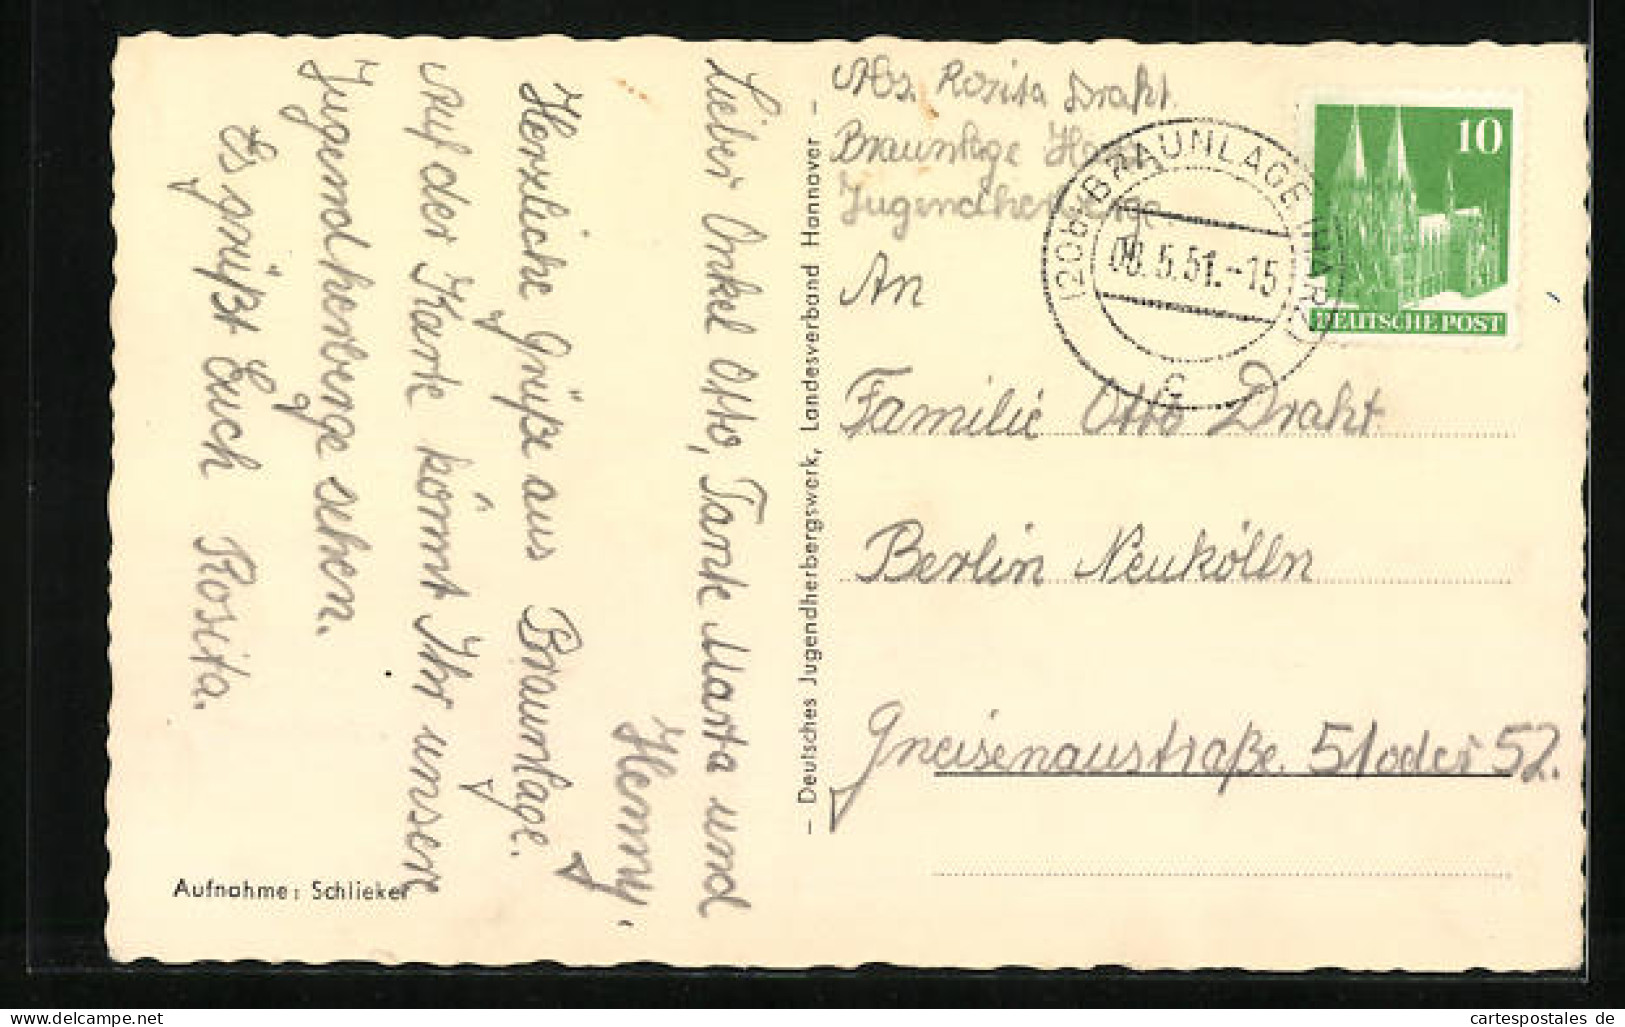 Lieber Onkel Otto, Tante Marta und
Henny.
Herzliche Grüße aus Braunlage.
Auf der Karte könnt Ihr unsere
Jugendherberge sehen.
Es grüßt Euch Rosita.
Aufnahme: Schlieker
– Deutsches Jugendherbergswerk, Landesverband Hannover –
Abs. Rosita Draht.
Braunlage Harz
Jugendherberge.
An
Familie Otto Draht.
Berlin Neukölln
Gneisenaustraße. 51 oder 52.
(20b) BRAUNLAGE (HARZ)
08.5.51.-15
c
10
DEUTSCHE POST
www.cartespostales.de
cartespostales de